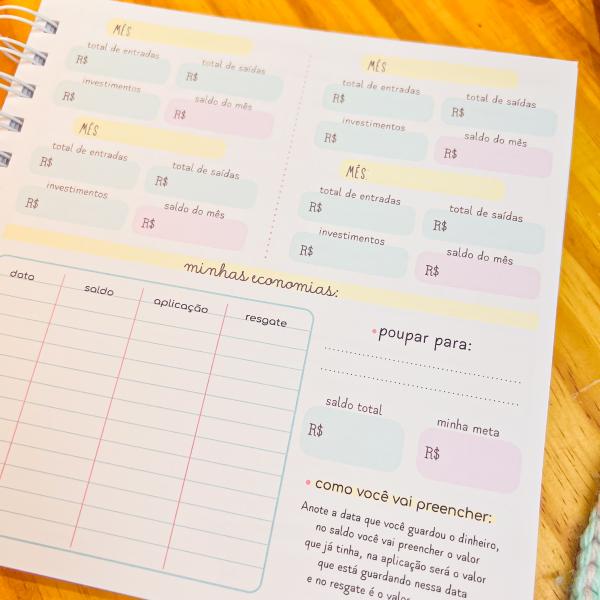 MÊS
total de entradas
R$
total de saídas
R$
investimentos
R$
saldo do mês
R$
MÊS
total de entradas
R$
total de saídas
R$
investimentos
R$
saldo do mês
R$
MÊS
total de entradas
R$
total de saídas
R$
investimentos
R$
saldo do mês
R$
MÊS
total de entradas
R$
total de saídas
R$
investimentos
R$
saldo do mês
R$
minhas economias:
data saldo aplicação resgate
poupar para:
saldo total
R$
minha meta
R$
como você vai preencher:
Anote a data que você guardou o dinheiro,
no saldo você vai preencher o valor
que já tinha, na aplicação será o valor
que está guardando nessa data
e no resgate é o valor